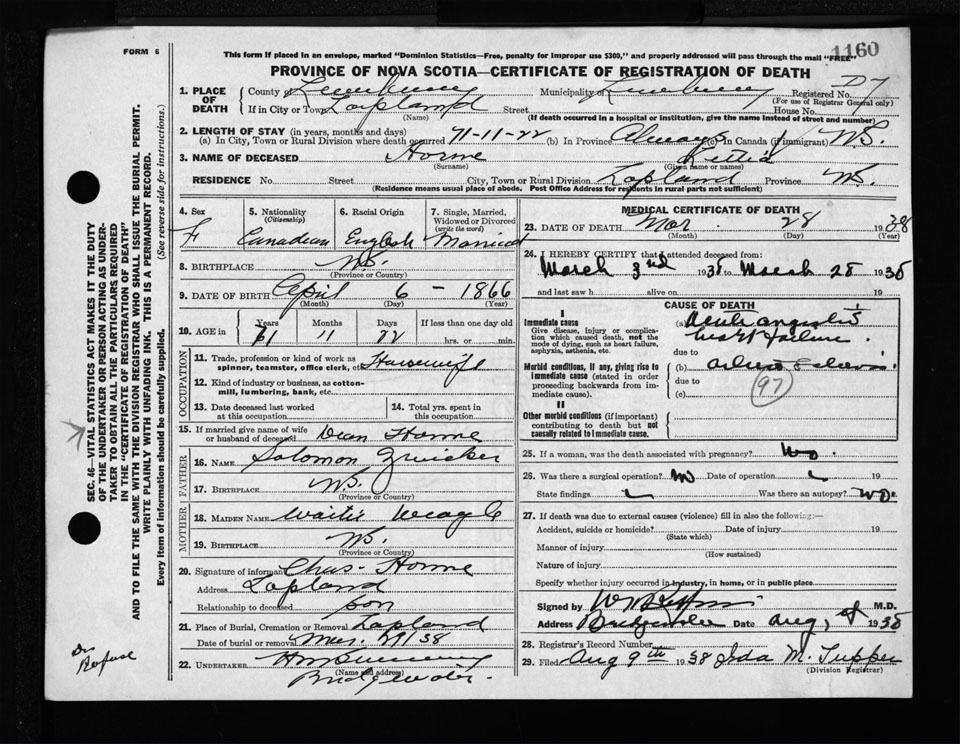 1160
FORM 6
This form if placed in an envelope, marked "Dominion Statistics—Free, penalty for improper use $300," and properly addressed will pass through the mail "FREE"
PROVINCE OF NOVA SCOTIA—CERTIFICATE OF REGISTRATION OF DEATH
1. PLACE OF DEATH County of Lunenburg Municipality of Lunenburg Registered No. D7
(For use of Registrar General only)
If in City or Town Lapland Street House No.
(Name) (If death occurred in a hospital or institution, give the name instead of street and number)
2. LENGTH OF STAY (in years, months and days)
(a) In City, Town or Rural Division where death occurred 71-11-22 (b) In Province Always (c) In Canada (if immigrant) N.S.
3. NAME OF DECEASED Horne Lettia
(Surname) (Given name or names)
RESIDENCE No. Street City, Town or Rural Division Lapland Province N.S.
(Residence means usual place of abode. Post Office Address for residents in rural parts not sufficient)
4. Sex F
5. Nationality (Citizenship) Canadian
6. Racial Origin English
7. Single, Married, Widowed or Divorced (write the word) Married
8. BIRTHPLACE N.S.
(Province or Country)
9. DATE OF BIRTH April 6 - 1866
(Month) (Day) (Year)
10. AGE in Years Months Days If less than one day old
71 11 22 hrs. or min.
OCCUPATION
11. Trade, profession or kind of work as spinner, teamster, office clerk, etc. Housewife
12. Kind of industry or business, as cotton-mill, lumbering, bank, etc.
13. Date deceased last worked at this occupation
14. Total yrs. spent in this occupation
15. If married give name of wife or husband of deceased Dean Horne
FATHER
16. NAME Solomon Zwicker
17. BIRTHPLACE N.S.
(Province or Country)
MOTHER
18. MAIDEN NAME
19. BIRTHPLACE N.S.
(Province or Country)
20. Signature of informant Chas. Horne
Address Lapland
Relationship to deceased son
21. Place of Burial, Cremation or Removal Lapland
Date of burial or removal Mar. 29/38
22. UNDERTAKER
(Name and address)
Bridgewater
MEDICAL CERTIFICATE OF DEATH
23. DATE OF DEATH Mar. 28 1938
(Month) (Day) (Year)
24. I HEREBY CERTIFY that I attended deceased from:
March 3rd 1938 to March 28 1938
and last saw h alive on 19
CAUSE OF DEATH
I
Immediate cause
Give disease, injury or complication which caused death, not the mode of dying, such as heart failure, asphyxia, asthenia, etc.
(a) Acute angina
heart failure.
due to
Morbid conditions, if any, giving rise to immediate cause (stated in order proceeding backwards from immediate cause).
(b)
due to
(c)
97
II
Other morbid conditions (if important) contributing to death but not causally related to immediate cause.
25. If a woman, was the death associated with pregnancy? No.
26. Was there a surgical operation? Date of operation 19
State findings Was there an autopsy? No.
27. If death was due to external causes (violence) fill in also the following:—
Accident, suicide or homicide? Date of injury 19
(State which)
Manner of injury
(How sustained)
Nature of injury
Specify whether injury occurred in industry, in home, or in public place
Signed by M.D.
Address Bridgewater Date Aug. 1938
28. Registrar's Record Number
29. Filed Aug 9th 1938 Ida M. Tupper
(Division Registrar)
SEC. 46—VITAL STATISTICS ACT MAKES IT THE DUTY
OF THE UNDERTAKER OR PERSON ACTING AS UNDER-
TAKER TO OBTAIN ALL THE PARTICULARS REQUIRED
IN THE "CERTIFICATE OF REGISTRATION OF DEATH"
AND TO FILE THE SAME WITH THE DIVISION REGISTRAR WHO SHALL ISSUE THE BURIAL PERMIT.
WRITE PLAINLY WITH UNFADING INK. THIS IS A PERMANENT RECORD.
Every item of information should be carefully supplied. (See reverse side for instructions.)
Dr.
Rafuse